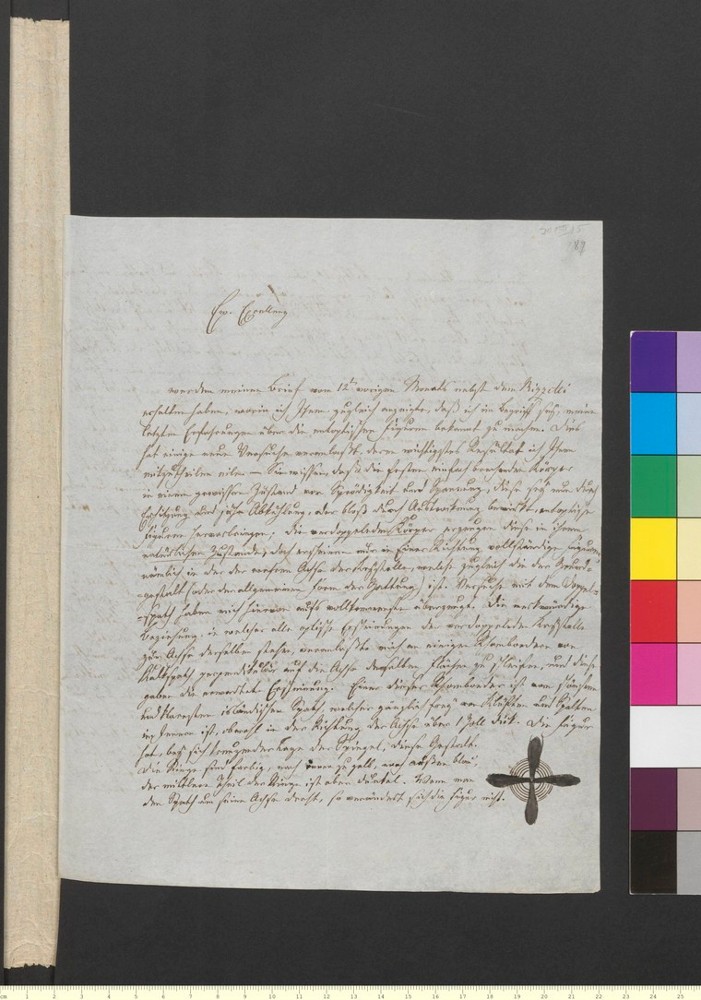 89
Ew. Excellenz
werden meinen Brief vom 12t vorigen Monats nebst dem Rizzetti
erhalten haben, worin ich Ihnen zugleich anzeigte, daß ich im Begriff sey, meine
letzten Erfahrungen über die entoptischen Figuren bekannt zu machen. Dies
hat einige neue Versuche veranlaßt, deren wichtigstes Resultat ich Ihnen
mitzutheilen eile. — Sie wissen, daß die festen einfach brechenden Körper
in einem gewissen Zustand von Sprödigkeit und Spannung, dieser sey nun durch
Erhitzung und schnelle Abkühlung, oder bloß durch Austrocknung bewirkt, entoptische
Figuren hervorbringen; die verdoppelnden Körper erzeugen diese in ihrem
natürlichen Zustande, doch erscheinen nur in Einer Richtung vollständige Figuren
nämlich in der der wahren Achse der Krystalle, welche zugleich die der
gestalt (oder der allgemeinen Form der Gattung) ist. Versuche mit dem Doppel-
spath haben mich hiervon aufs vollkommenste überzeugt. Die merkwürdige
Beziehung, in welcher alle optische Erscheinungen der verdoppelnden Krystalle
zur Achse derselben stehen, veranlaßte mich an einigen Rhomboedern von
Kalkspath perpendikulär auf die Achse derselben Flächen zu schleifen, und diese
gaben die erwartete Erscheinung. Einer dieser Rhomboeder ist vom schönsten
und klarsten isländischen Spath, welcher gänzlich frey von Klüften und Spalten
im Innern ist, obwohl in der Richtung der Achse über 1 Zoll dick. Die Figur
hat, bey sich kreuzender Lage der Spiegel, diese Gestalt.
Die Ringe sind farbig, nach innen zu gelb, nach außen blau,
der mittlere Theil der Ringe ist aber dunkel. Wenn man
den Spath um seine Achse dreht, so verändert sich die Figur nicht.